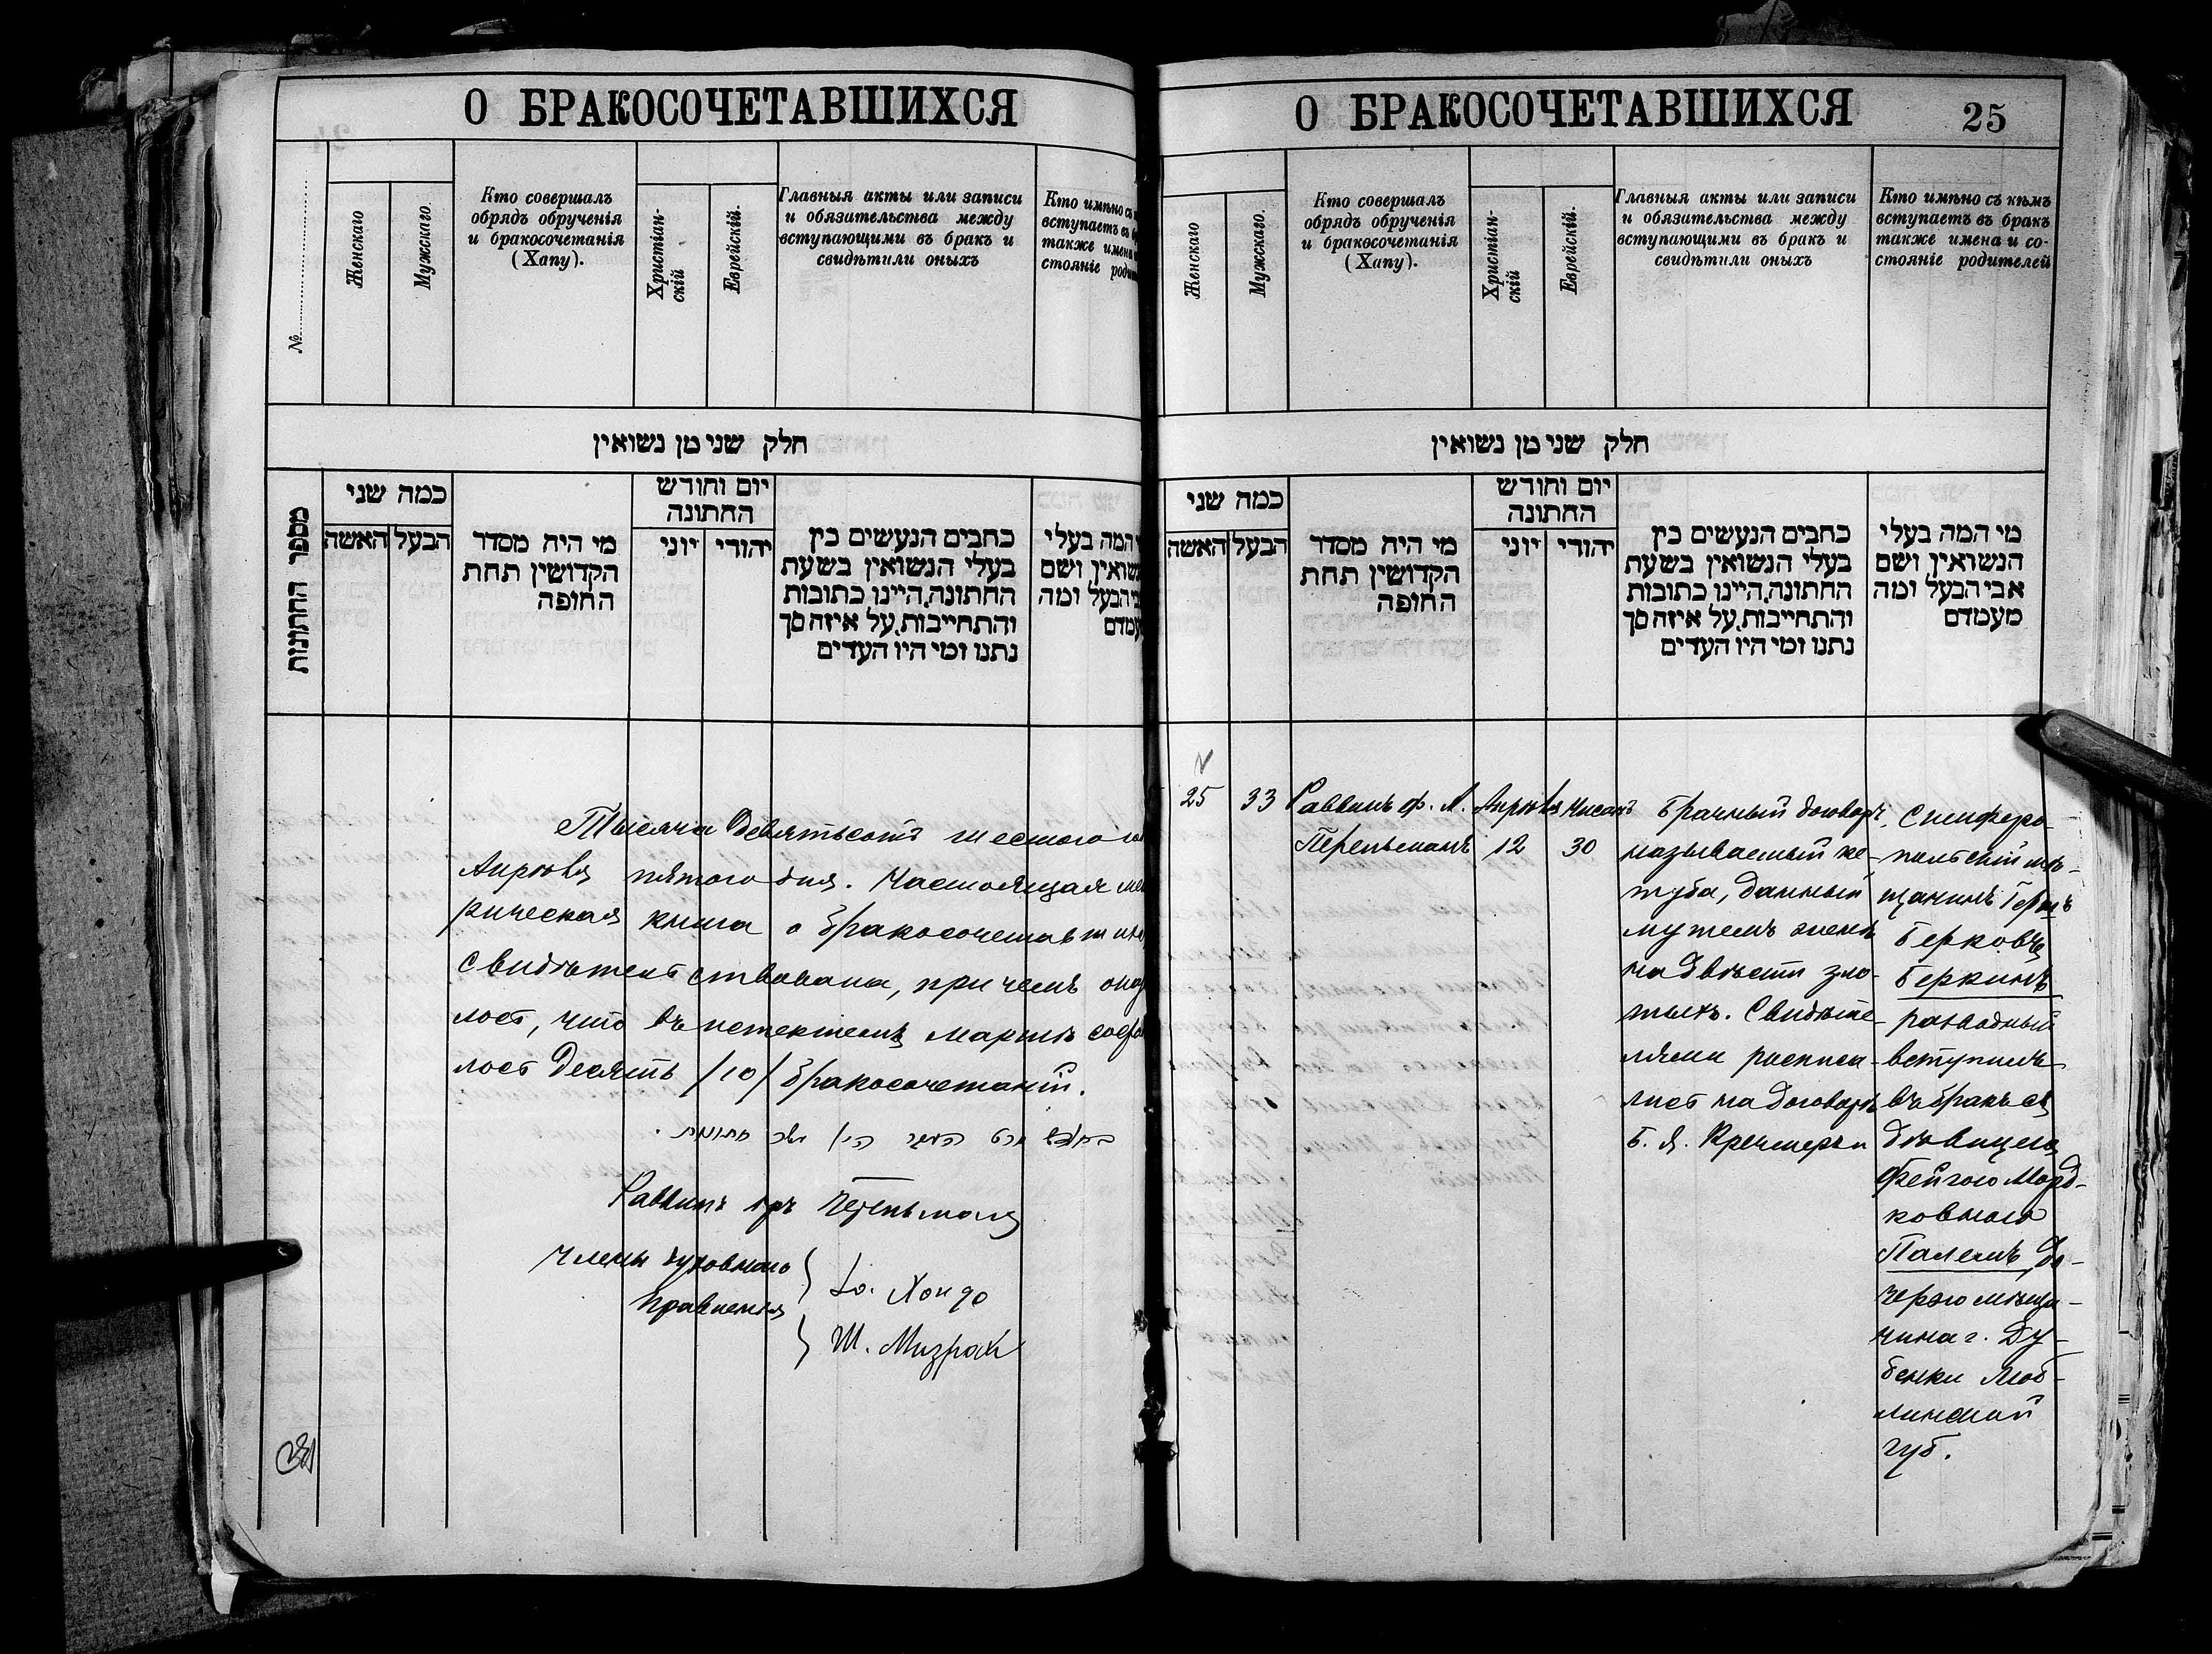 О БРАКОСОЧЕТАВШИХСЯ
№
Женскаго
Мужскаго
Кто совершалъ
обрядъ обрученія
и бракосочетанія
(Хапу).
Христіан-
скій
Еврейскій.
Главныя акты или записи
и обязательства между
вступающими въ бракъ и
свидѣтили оныхъ
Кто имѣно съ
вступаетъ въ
также имена
стояніе
חלק שני מן נשואין
מספר החתונות
כמה שני
האשה
הבעל
מי היה מסדר
הקדושין תחת
החופה
יום וחודש
החתונה
יוני
יהודי
כתבים הנעשים בין
בעלי הנשואין בשעת
החתונה, היינו כתובות
והתחייבות, על איזה סך
נתנו ומי היו העדים
המה בעלי
ושם
הבעל ומה
Тысяча девятьсотъ шестого
Апрѣля пятого дня. Настоящая
рическая книга о бракосочетавших
свидѣтельствована, при чемъ
лось, что въ истекшемъ мартѣ
лось десять /10/ бракосочетаній.
Раввинъ Перельманъ
Члены духовнаго
правленія
Ю. Хондо
Ш. Мизрах
О БРАКОСОЧЕТАВШИХСЯ
25
Женскаго
Мужскаго.
Кто совершалъ
обрядъ обрученія
и бракосочетанія
(Хапу).
Христіан-
скій
Еврейскій.
Главныя акты или записи
и обязательства между
вступающими въ бракъ и
свидѣтили оныхъ
Кто имѣно съ кѣмъ
вступаетъ въ бракъ
также имена и со-
стояніе родителей
חלק שני מן נשואין
כמה שני
האשה
הבעל
מי היה מסדר
הקדושין תחת
החופה
יום וחודש
החתונה
יוני
יהודי
כתבים הנעשים בין
בעלי הנשואין בשעת
החתונה, היינו כתובות
והתחייבות, על איזה סך
נתנו ומי היו העדים
מי המה בעלי
הנשואין ושם
אבי הבעל ומה
מעמדם
25
33
Раввинъ Ф. Л.
Перельманъ
Апрѣля
12
Нисанъ
30
Брачный договоръ,
называемый ке-
туба, данный
мужемъ женѣ
на двѣсти зло-
тыхъ. Свидѣте-
лями росписа-
лись на договорѣ
Б. Я. Кречмеръ и
Симферо-
польскій мѣ-
щанинъ Гершъ
Берковъ
Беркинъ
разводный
вступилъ
въ бракъ съ
дѣвицею
Фейгою Морд-
ковною
Палемъ, до-
черью мѣща-
нина г. Ду-
бенки Люб-
линской
губ.